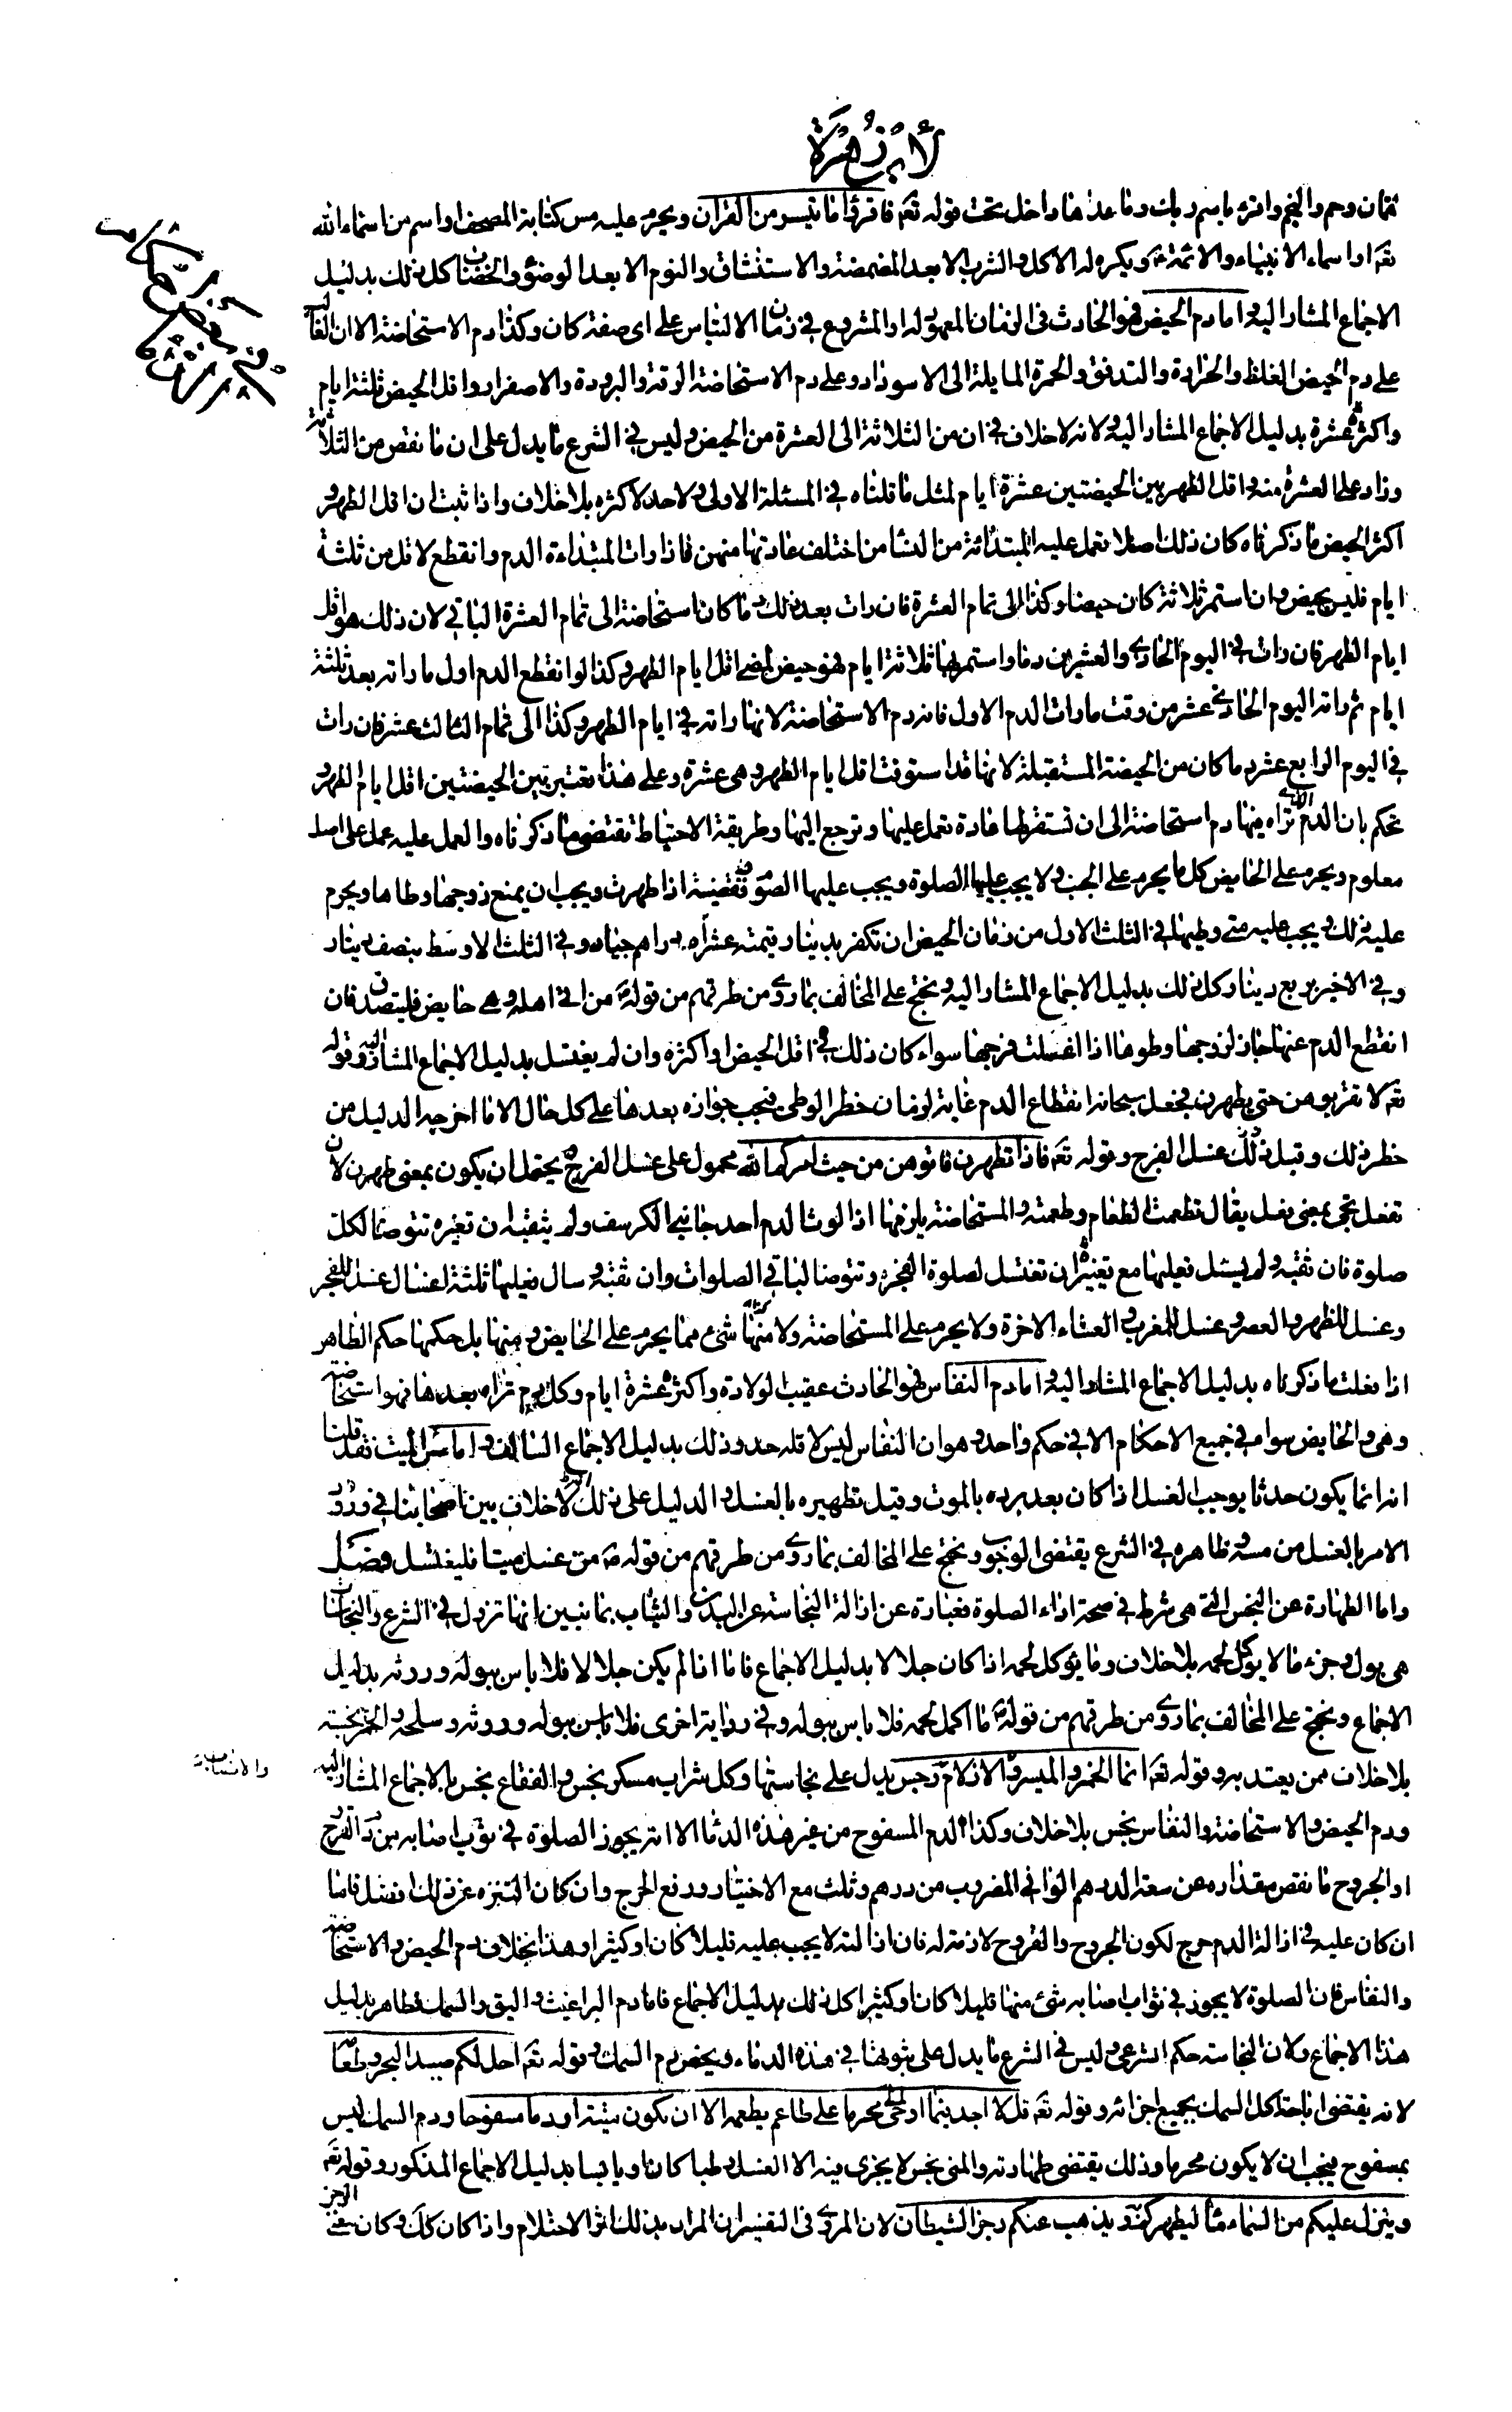 لابن زهرة
لقمان وحم والنجم واقرء باسم ربك وما عداها داخل تحت قوله تعم فاقرؤا ما تيسر من القران ويحرم عليه مس كتابة المصحف او اسم من اسماء الله
تعم او اسماء الانبياء والائمة ع ويكره له الاكل والشرب الا بعد المضمضة والاستنشاق والنوم الا بعد الوضوء والخضاب كل ذلك بدليل
الاجماع المشار اليه واما دم الحيض فهو الحادث فى الزمان المعهود له او المشروع فى زمان الالتباس على اى صفة كان وكذا دم الاستحاضة الا ان الغالب
على دم الحيض الغلظ والحرارة والتدفق والحمرة المايلة الى الاسوداد وعلى دم الاستحاضة الرقة والبرودة والاصفرار واقل الحيض ثلثة ايام
واكثره عشرة بدليل الاجماع المشار اليه ولانه لا خلاف فى ان من الثلاثة الى العشرة من الحيض وليس فى الشرع ما يدل على ان ما نقص من الثلاثة
وزاد على العشرة منه واقل الطهر بين الحيضتين عشرة ايام لمثل ما قلناه فى المسئلة الاولى ولا حد لاكثره بلا خلاف واذا ثبت ان اقل الطهر و
اكثر الحيض ما ذكرناه كان ذلك اصلا تعمل عليه المبتدائة من النسا من اختلف عادتها منهن فاذا رات المبتداءة الدم وانقطع لاقل من ثلثة
ايام فليس بحيض وان استمر ثلاثة كان حيضا وكذا الى تمام العشرة فان رات بعد ذلك دما كان استحاضة الى تمام العشرة الباقى لان ذلك هو اقل
ايام الطهر فان رات فى اليوم الحادى والعشرين دما واستمر بها ثلاثة ايام فهو حيض لمضى اقل ايام الطهر وكذا لو انقطع الدم اول ما راته بعد ثلثة
ايام ثم راته اليوم الحادى عشر من وقت ما رات الدم الاول فانه دم الاستحاضة لانها راته فى ايام الطهر وكذا الى تمام الثالث عشر فان رات
فى اليوم الرابع عشر دما كان من الحيضة المستقبلة لانها قد استوفت اقل ايام الطهر وهى عشرة وعلى هذا تعتبر بين الحيضتين اقل ايام الطهر و
تحكم بان الدم الذى تراه فيها دم استحاضة الى ان تستقر لها عادة تعمل عليها وترجع اليها وطريقة الاحتياط تقتضى ما ذكرناه والعمل عليه عمل على اصل
معلوم ويحرم على الحايض كل ما يحرم على الجنب ولا يجب عليها الصلوة ويجب عليها الصوم تقضيه اذا طهرت ويجب ان يمنع زوجها وطاها ويحرم
عليه ذلك ويجب عليه متى وطيها فى الثلث الاول من زمان الحيض ان تكفر بدينار قيمته عشرة دراهم جياد وفى الثلث الاوسط بنصف دينار
وفى الاخير بربع دينار وكل ذلك بدليل الاجماع المشار اليه ونحتج على المخالف بما روى من طرقهم من قوله ع من اتى اهله وهى حايض فليتصدق فان
انقطع الدم عنها جاز لزوجها وطوها اذا اغسلت فرجها سواء كان ذلك فى اقل الحيض او اكثره وان لم يغتسل بدليل الاجماع المشار اليه وقوله
تعم لا تقربوهن حتى يطهرن فجعل سبحانه انقطاع الدم غاية لزمان خطر الوطى فيجب جوازه بعدها على كل حال الا ما اخرجه الدليل من
خطر ذلك وقبل ذلك غسل الفرج وقوله تعم فاذا تطهرن فاتوهن من حيث امركم الله محمول على غسل الفرج ويحتمل ان يكون بمعنى طهرن لان
تفعل تجى بمعنى فعل يقال تطعمت الطعام وطعمته والمستحاضة يلزمها اذا لوث الدم احد جانبى الكرسف ولم يثقبه ان تغيره وتتوضا لكل
صلوة فان ثقبه ولم يسل فعليها مع تغييره ان تغتسل لصلوة الفجر وتتوضا لباقى الصلوات وان ثقبه وسال فعليها ثلثة اغسال غسل للفجر
وغسل للظهر والعصر وغسل للمغرب والعشاء الاخرة ولا يحرم على المستحاضة ولا منها شئ مما يحرم على الحايض ومنها بل حكمها حكم الطاهر
اذا فعلت ما ذكرناه بدليل الاجماع المشار اليه واما دم النفاس فهو الحادث عقيب الولادة واكثره عشرة ايام وكل دم تراه بعدها فهو استحاضة
وهى والحايض سواء فى جميع الاحكام الا فى حكم واحد وهو ان النفاس ليس لاقله حد وذلك بدليل الاجماع السالف واما مس الميت فقد قلنا
انه انما يكون حدثا يوجب الغسل اذا كان بعد برده بالموت وقبل تطهيره بالغسل والدليل على ذلك انه لا خلاف بين اصحابنا فى ورود
الامر بالغسل من مسه وظاهره فى الشرع يقتضى الوجوب ونحتج على المخالف بما روى من طرقهم من قوله ع من غسل ميتا فليغتسل فصل
واما الطهارة عن النجس التى هى شرط فى صحة اداء الصلوة فعبارة عن ازالة النجاسة عن البدن والثياب بما نبين انها تزول فى الشرع والنجاسات
هى بول وخرء ما لا يوكل لحمه بلا خلاف وما يؤكل لحمه اذا كان جلالا بدليل الاجماع فاما اذا لم يكن جلالا فلا باس ببوله وروثه بدليل
الاجماع ونحتج على المخالف بما روى من طرقهم من قوله ع ما اكل لحمه فلا باس ببوله وفى رواية اخرى فلا باس ببوله وروثه وسلحه والخمر نجسة
بلا خلاف ممن يعتد به وقوله تعم انما الخمر والميسر والازلام رجس يدل على نجاستها وكل شراب مسكر نجس والفقاع نجس بالاجماع المشار اليه
والانصاب
ودم الحيض والاستحاضة والنفاس نجس بلا خلاف وكذا الدم المسفوح من غير هذه الدما الا انه يجوز الصلوة فى ثوب اصابه من دم القروح
او الجروح ما نقص مقداره عن سعة الدرهم الوافى المضروب من درهم وثلث مع الاختيار ورفع الحرج وان كان التنزه عن ذلك افضل فاما
ان كان عليه فى ازالة الدم حرج لكون الجروح والقروح لازمة له فان ازالته لا يجب عليه قليلا كان او كثيرا وهذا بخلاف دم الحيض والاستحاضة
والنفاس فان الصلوة لا يجوز فى ثواب اصابه شئ منها قليلا كان او كثيرا كل ذلك بدليل الاجماع فاما دم البراغيث والبق والسمك فطاهر بدليل
هذا الاجماع ولان النجاسة حكم شرعى وليس فى الشرع ما يدل على ثبوتها فى هذه الدماء ويخص دم السمك وقوله تعم احل لكم صيد البحر وطعامه
لانه يقتضى اباحة اكل السمك بجميع اجزائه وقوله تعم قل لا اجد فيما اوحى الى محرما على طاعم يطعمه الا ان تكون ميتة او دما مسفوحا ودم السمك ليس
بمسفوح فيجب ان لا يكون محرما وذلك يقتضى طهارته والمنى نجس لا يجزى فيه الا الغسل رطبا كان او يابسا بدليل الاجماع المذكور وقوله تعم
وينزل عليكم من السماء ماء ليطهركم به ويذهب عنكم رجز الشيطان لان المروى فى التفسير ان المراد بذلك اثر الاحتلام واذا كان كك وكان معنى الرجز